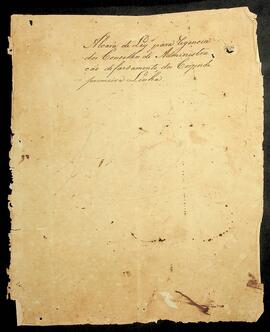 Alvará de Ley para Regencia
dos Conselhos de Administra
ção de fardamento dos Corpos de
primeira Linha.